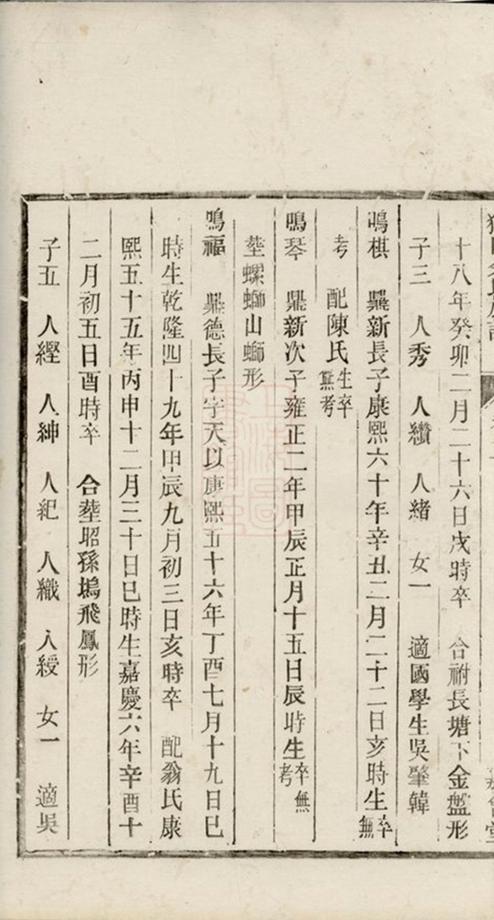 十八年癸卯二月二十六日戌時卒　合祔長塘下金盤形
子三　人秀　人纘　人緒　女一　適國學生吳肇韓
鳴棋　鼎新長子康熙六十年辛丑二月二十二日亥時生卒無
考　配陳氏生卒無考
鳴琴　鼎新次子雍正二年甲辰正月十五日辰時生卒無考
塟螺螄山螄形
鳴福　鼎德長子字天以康熙五十六年丁酉七月十九日巳
時生乾隆四十九年甲辰九月初三日亥時卒　配翁氏康
熙五十五年丙申十二月三十日巳時生嘉慶六年辛酉十
二月初五日酉時卒　合塟昭孫塢飛鳳形
子五　人經　人紳　人紀　人織　人綬　女一　適吳